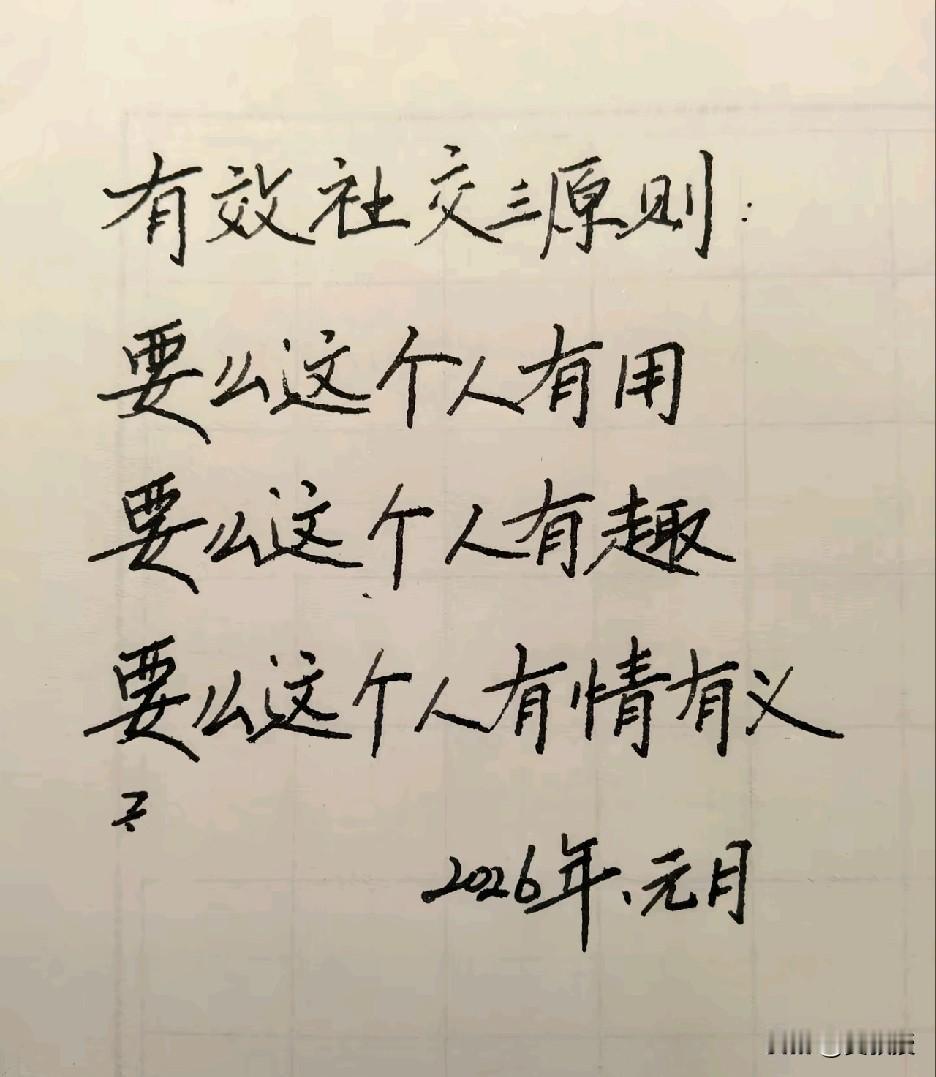 有效社交三原则：
要么这个人有用
要么这个人有趣
要么这个人有情有义
2026年、元月